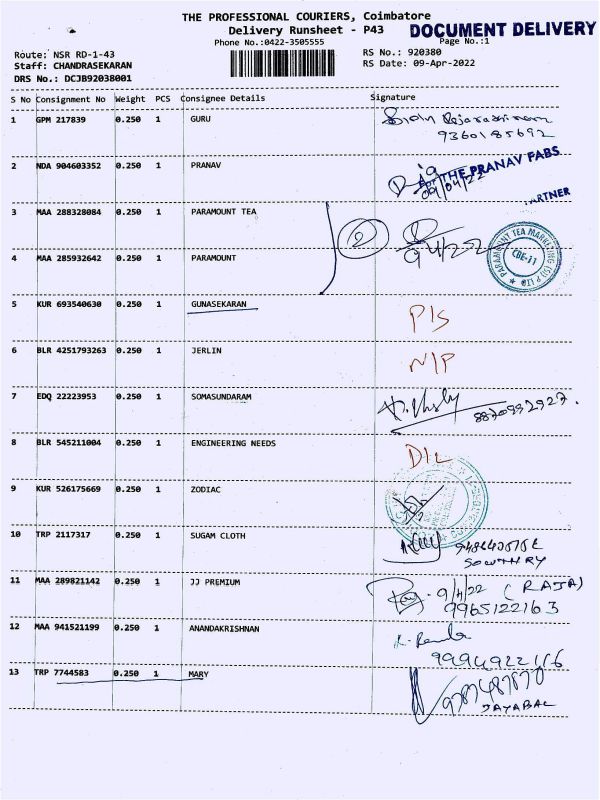 THE PROFESSIONAL COURIERS, Coimbatore
Delivery Runsheet - P43
DOCUMENT DELIVERY
Phone No.:0422-3505555
Page No.:1
Route: NSR RD-1-43
RS No.: 920380
Staff: CHANDRASEKARAN
RS Date: 09-Apr-2022
DRS No.: DCJB92038001
S No Consignment No Weight PCS Consignee Details Signature
1 GPM 217839 0.250 1 GURU
9360185692
2 NDA 904603352 0.250 1 PRANAV
THE PRANAV FABS
09/04/22
PARTNER
3 MAA 288328084 0.250 1 PARAMOUNT TEA
2
9/4/22
PARAMOUNT TEA MARKETING (SI) P LTD
CBE-11
4 MAA 285932642 0.250 1 PARAMOUNT
5 KUR 693540630 0.250 1 GUNASEKARAN
P/S
6 BLR 4251793263 0.250 1 JERLIN
N/P
7 EDQ 22223953 0.250 1 SOMASUNDARAM
8870992927.
8 BLR 545211004 0.250 1 ENGINEERING NEEDS
D/L
9 KUR 526175669 0.250 1 ZODIAC
10 TRP 2117317 0.250 1 SUGAM CLOTH
SOWTHRY
11 MAA 289821142 0.250 1 JJ PREMIUM
9/4/22 (RAJA)
9965122163
12 MAA 941521199 0.250 1 ANANDAKRISHNAN
13 TRP 7744583 0.250 1 MARY
JAYABAL